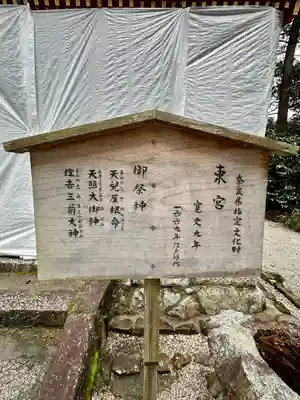 奈良県指定文化財
東宮
寛文九年
一六六九年 江戸時代
御祭神
天兒屋根命
天照大御神
住吉三前大神